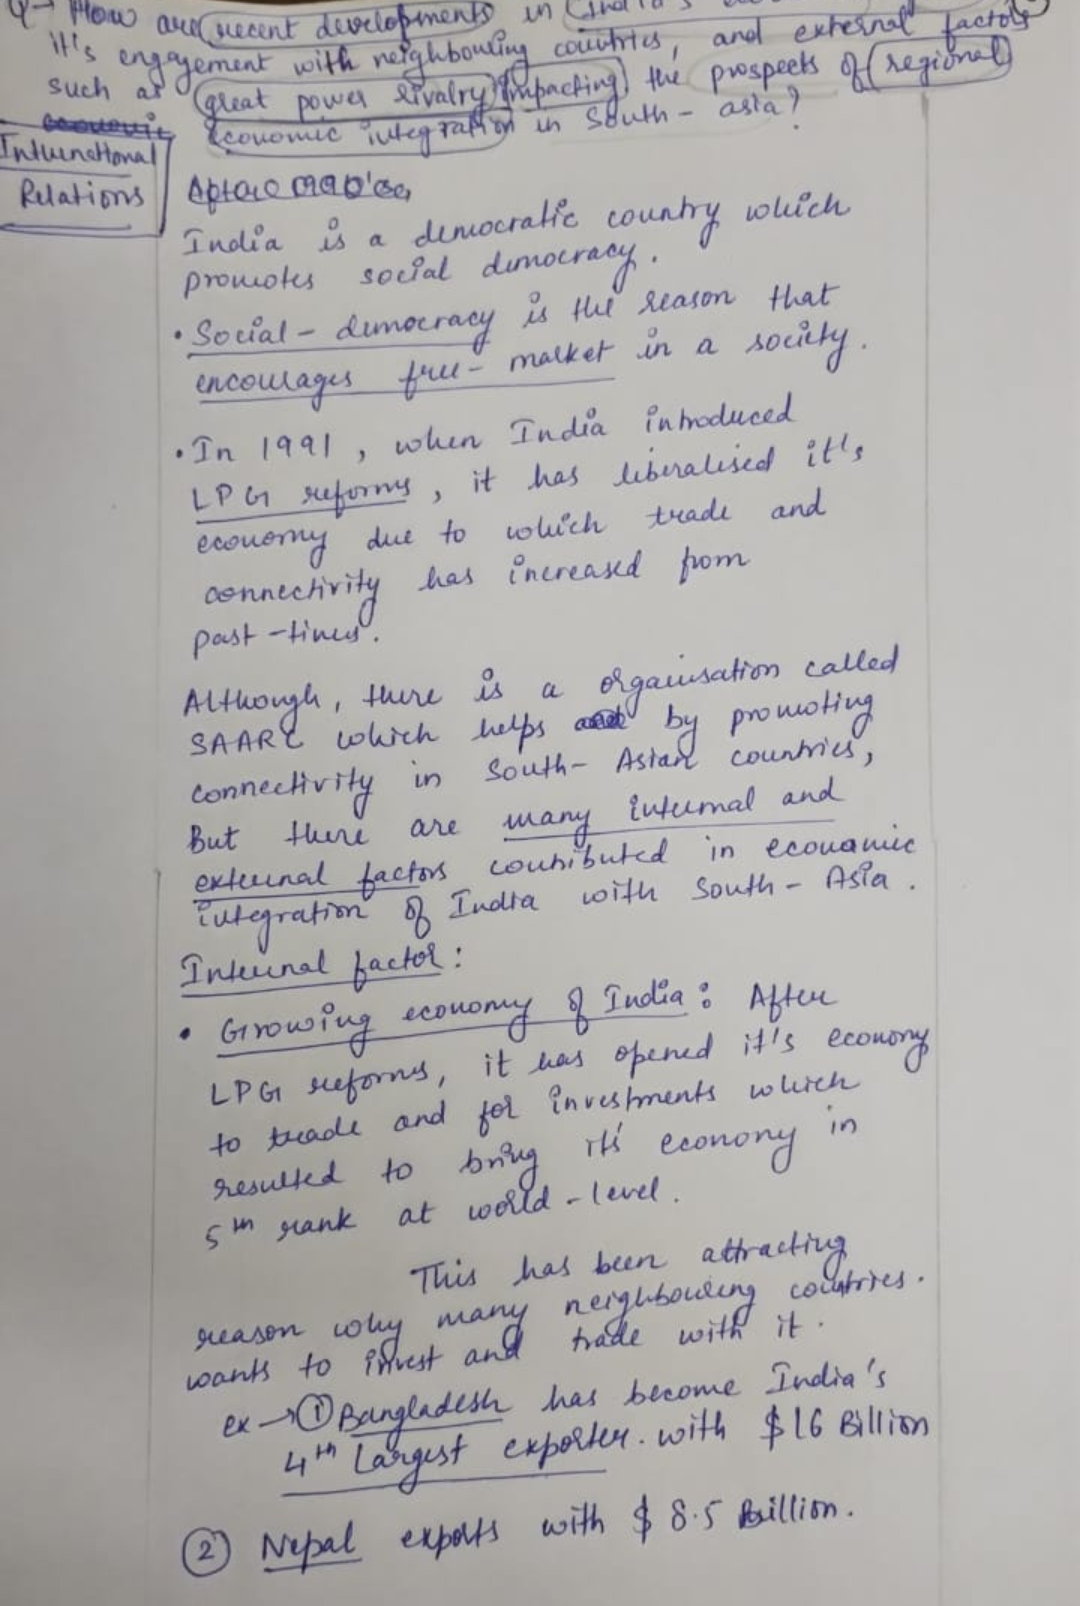 Q→ How are recent developments in India's
it's engagement with neighbouring countries, and external factors
such as great power rivalry impacting the prospects of regional
economic integration in South-asia?
International
Relations
India is a democratic country which
promotes social democracy.
• Social-democracy is the reason that
encourages free-market in a society.
• In 1991, when India introduced
LPG reforms, it has liberalised it's
economy due to which trade and
connectivity has increased from
past-times.
Although, there is a organisation called
SAARC which helps by promoting
connectivity in South-Asian countries,
But there are many internal and
external factors contributed in economic
integration of India with South-Asia.
Internal factor:
• Growing economy of India: After
LPG reforms, it has opened it's economy
to trade and for investments which
resulted to bring its economy in
5th rank at world-level.
This has been attracting
reason why many neighbouring countries.
wants to invest and trade with it.
ex → ① Bangladesh has become India's
4th Largest exporter. with $16 Billion
② Nepal exports with $8.5 Billion.